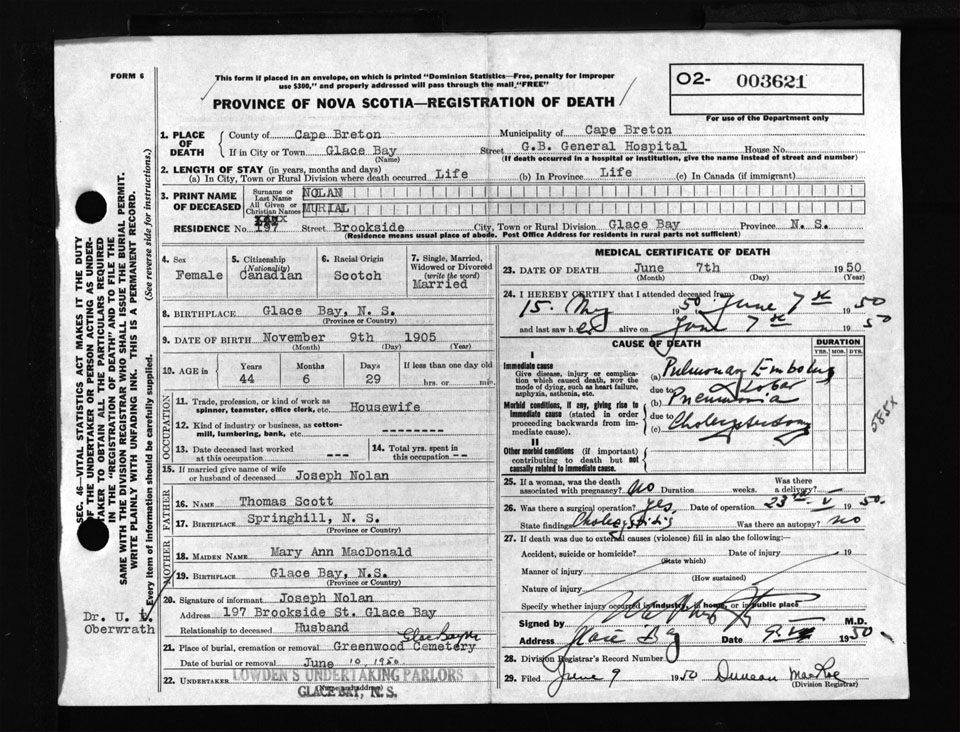 FORM 6
This form if placed in an envelope, on which is printed "Dominion Statistics—Free, penalty for improper
use $300," and properly addressed will pass through the mail "FREE"
PROVINCE OF NOVA SCOTIA—REGISTRATION OF DEATH
O2- 003621
For use of the Department only
SEC. 46—VITAL STATISTICS ACT MAKES IT THE DUTY
OF THE UNDERTAKER OR PERSON ACTING AS UNDER-
TAKER TO OBTAIN ALL THE PARTICULARS REQUIRED
IN THE "REGISTRATION OF DEATH" AND TO FILE THE
SAME WITH THE DIVISION REGISTRAR WHO SHALL ISSUE THE BURIAL PERMIT.
WRITE PLAINLY WITH UNFADING INK. THIS IS A PERMANENT RECORD.
Every item of information should be carefully supplied. (See reverse side for instructions.)
1. PLACE OF DEATH
County of Cape Breton Municipality of Cape Breton
If in City or Town Glace Bay Street G.B. General Hospital House No.
(Name) (If death occurred in a hospital or institution, give the name instead of street and number)
2. LENGTH OF STAY (in years, months and days)
(a) In City, Town or Rural Division where death occurred Life (b) In Province Life (c) In Canada (if immigrant)
3. PRINT NAME OF DECEASED
Surname or Last Name NOLAN
All Given or Christian Names MURIAL
RESIDENCE No. 197 Street Brookside City, Town or Rural Division Glace Bay Province N. S.
(Residence means usual place of abode. Post Office Address for residents in rural parts not sufficient)
4. Sex Female
5. Citizenship (Nationality) Canadian
6. Racial Origin Scotch
7. Single, Married, Widowed or Divorced (write the word) Married
8. BIRTHPLACE Glace Bay, N. S.
(Province or Country)
9. DATE OF BIRTH November 9th 1905
(Month) (Day) (Year)
10. AGE in Years Months Days If less than one day old
44 6 29 hrs. or min.
OCCUPATION
11. Trade, profession, or kind of work as
spinner, teamster, office clerk, etc. Housewife
12. Kind of industry or business, as cotton-
mill, lumbering, bank, etc. --------
13. Date deceased last worked
at this occupation ---
14. Total yrs. spent in
this occupation --
15. If married give name of wife
or husband of deceased Joseph Nolan
FATHER
16. NAME Thomas Scott
17. BIRTHPLACE Springhill, N. S.
(Province or Country)
MOTHER
18. MAIDEN NAME Mary Ann MacDonald
19. BIRTHPLACE Glace Bay, N.S.
(Province or Country)
20. Signature of informant Joseph Nolan
Address 197 Brookside St. Glace Bay
Relationship to deceased Husband
Dr. U.
Oberwrath
21. Place of burial, cremation or removal Greenwood Cemetery
Date of burial or removal June 10, 1950
22. UNDERTAKER LOWDEN'S UNDERTAKING PARLORS
(Name and address)
GLACE BAY, N. S.
MEDICAL CERTIFICATE OF DEATH
23. DATE OF DEATH June 7th 1950
(Month) (Day) (Year)
24. I HEREBY CERTIFY that I attended deceased from
15. May 1950 June 7th 1950
and last saw her alive on June 7th 1950
CAUSE OF DEATH
DURATION
YRS. MOS. DYS.
I
Immediate cause
Give disease, injury or complica-
tion which caused death, NOT the
mode of dying, such as heart failure,
asphyxia, asthenia, etc.
(a) Pulmonary Embolus
due to Lobar
(b) Pneumonia
Morbid conditions, if any, giving rise to
immediate cause (stated in order
proceeding backwards from im-
mediate cause).
due to
(c)
585X
II
Other morbid conditions (if important)
contributing to death but not
causally related to immediate cause.
25. If a woman, was the death
associated with pregnancy? No Duration weeks. Was there
a delivery?
26. Was there a surgical operation? yes. Date of operation 23rd V 1950.
State findings Was there an autopsy? no
27. If death was due to external causes (violence) fill in also the following:
Accident, suicide or homicide? Date of injury 19
(State which)
Manner of injury
(How sustained)
Nature of injury
Specify whether injury occurred in industry, in home, or in public place
Signed by M.D.
Address Glace Bay Date 1950
28. Division Registrar's Record Number
29. Filed June 9 1950 Duncan MacRae
(Division Registrar)